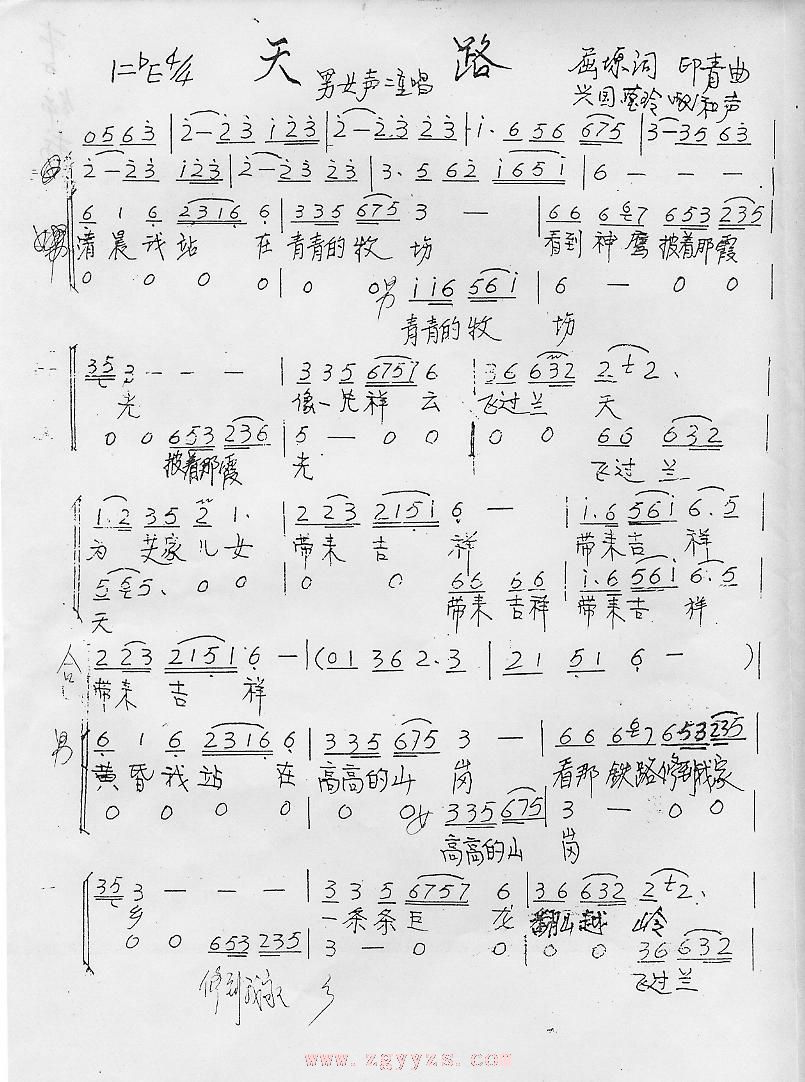 天路
1=♭E 4/4
男女声二重唱
屈塬词 印青曲
和声
0 5 6 3 | 2 — 2 3 1 2 3 | 2 — 2 3 2 3 | 1. 6 5 6 6 7 5 | 3 — 3 5 6 3
2 — 2 3 1 2 3 | 2 — 2 3 2 3 | 3. 5 6 2 1 6 5 1 | 6 — — —
6 1 6 2 3 1 6 6 | 3 3 5 6 7 5 3 — | 6 6 6 6 7 6 5 3 2 3 5
清晨我站在青青的牧场 看到神鹰披着那霞
0 0 0 0 | 0 0 男 1 1 6 5 6 1 | 6 — 0 0
青青的牧场
3 5 3 — — — | 3 3 5 6 7 5 7 6 | 3 6 6 3 2 2 2.
光 像一片祥云 飞过兰天
0 0 6 5 3 2 3 6 | 5 — 0 0 | 0 0 6 6 6 3 2
披着那霞光 飞过兰
1. 2 3 5 2 1. | 2 2 3 2 1 5 1 6 — | 1. 6 5 6 1 6. 5
为 家儿女 带来吉祥 带来吉祥
5 6 5. 0 0 | 0 0 6 6 6 6 | 1. 6 5 6 1 6. 5
天 带来吉祥 带来吉祥
合 2 2 3 2 1 5 1 6 — | (0 1 3 6 2. 3 | 2 1 5 1 6 — )
带来吉祥
男 6 1 6 2 3 1 6 6 | 3 3 5 6 7 5 3 — | 6 6 6 6 7 6 5 3 2 3 5
黄昏我站在高高的山岗 看那铁路修到我家
0 0 0 0 | 0 0 女 3 3 5 6 7 5 | 3 — 0 0
高高的山岗
3 5 3 — — — | 3 3 5 6 7 5 7 6 | 3 6 6 3 2 2 2.
乡 一条条巨龙 翻山越岭
0 0 6 5 3 2 3 5 | 3 — 0 0 | 0 0 3 6 6 3 2
修到我家乡 飞过兰
www.zgyyzs.com